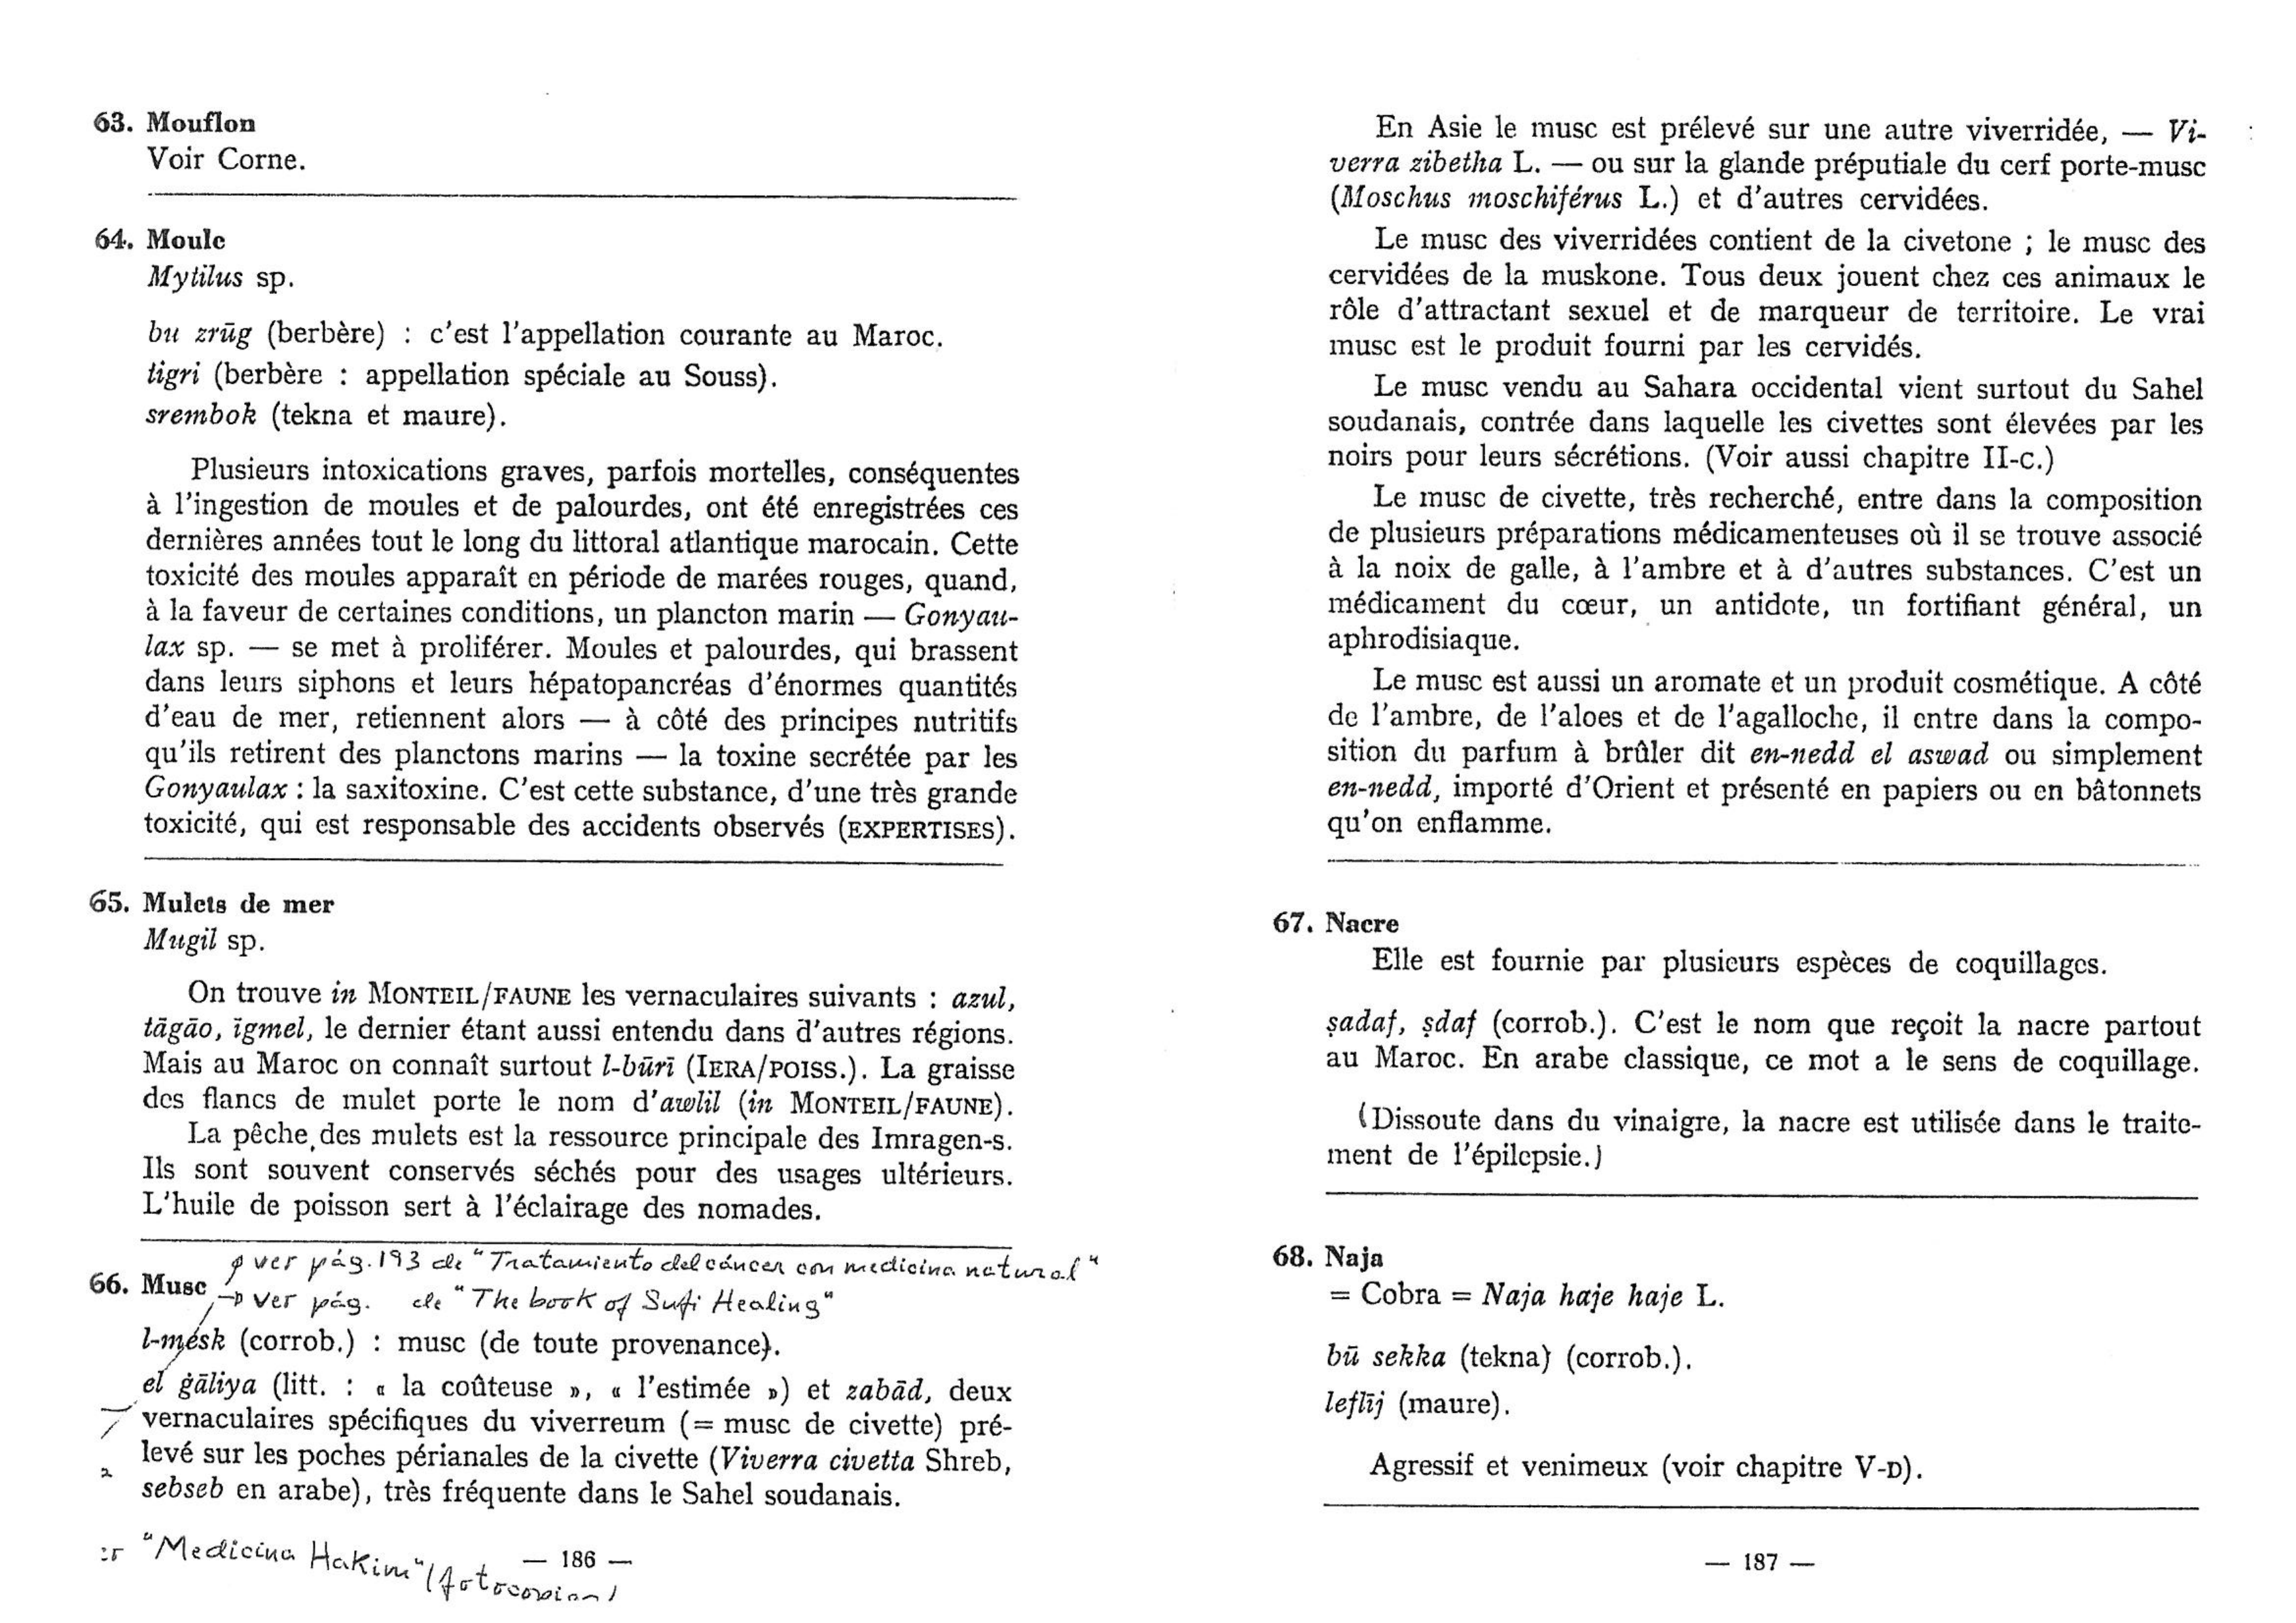 63. Mouflon
Voir Corne.
64. Moule
Mytilus sp.
bu zrūg (berbère) : c'est l'appellation courante au Maroc.
tigri (berbère : appellation spéciale au Souss).
srembok (tekna et maure).
Plusieurs intoxications graves, parfois mortelles, conséquentes
à l'ingestion de moules et de palourdes, ont été enregistrées ces
dernières années tout le long du littoral atlantique marocain. Cette
toxicité des moules apparaît en période de marées rouges, quand,
à la faveur de certaines conditions, un plancton marin — Gonyau-
lax sp. — se met à proliférer. Moules et palourdes, qui brassent
dans leurs siphons et leurs hépatopancréas d'énormes quantités
d'eau de mer, retiennent alors — à côté des principes nutritifs
qu'ils retirent des planctons marins — la toxine secrétée par les
Gonyaulax : la saxitoxine. C'est cette substance, d'une très grande
toxicité, qui est responsable des accidents observés (EXPERTISES).
65. Mulets de mer
Mugil sp.
On trouve in MONTEIL/FAUNE les vernaculaires suivants : azul,
tāgāo, īgmel, le dernier étant aussi entendu dans d'autres régions.
Mais au Maroc on connaît surtout l-būrī (IERA/POISS.). La graisse
des flancs de mulet porte le nom d'awlil (in MONTEIL/FAUNE).
La pêche des mulets est la ressource principale des Imragen-s.
Ils sont souvent conservés séchés pour des usages ultérieurs.
L'huile de poisson sert à l'éclairage des nomades.
ver pág. 193 de "Tratamiento del cáncer con medicina natural"
66. Musc
→ ver pág. de "The book of Sufi Healing"
l-mésk (corrob.) : musc (de toute provenance).
el ġāliya (litt. : « la coûteuse », « l'estimée ») et zabād, deux
vernaculaires spécifiques du viverreum (= musc de civette) pré-
levé sur les poches périanales de la civette (Viverra civetta Shreb,
sebseb en arabe), très fréquente dans le Sahel soudanais.
"Medicina Hakim" (fotocopias)
— 186 —
En Asie le musc est prélevé sur une autre viverridée, — Vi-
verra zibetha L. — ou sur la glande préputiale du cerf porte-musc
(Moschus moschiférus L.) et d'autres cervidées.
Le musc des viverridées contient de la civetone ; le musc des
cervidées de la muskone. Tous deux jouent chez ces animaux le
rôle d'attractant sexuel et de marqueur de territoire. Le vrai
musc est le produit fourni par les cervidés.
Le musc vendu au Sahara occidental vient surtout du Sahel
soudanais, contrée dans laquelle les civettes sont élevées par les
noirs pour leurs sécrétions. (Voir aussi chapitre II-C.)
Le musc de civette, très recherché, entre dans la composition
de plusieurs préparations médicamenteuses où il se trouve associé
à la noix de galle, à l'ambre et à d'autres substances. C'est un
médicament du cœur, un antidote, un fortifiant général, un
aphrodisiaque.
Le musc est aussi un aromate et un produit cosmétique. A côté
de l'ambre, de l'aloes et de l'agalloche, il entre dans la compo-
sition du parfum à brûler dit en-nedd el aswad ou simplement
en-nedd, importé d'Orient et présenté en papiers ou en bâtonnets
qu'on enflamme.
67. Nacre
Elle est fournie par plusieurs espèces de coquillages.
ṣadaf, ṣdaf (corrob.). C'est le nom que reçoit la nacre partout
au Maroc. En arabe classique, ce mot a le sens de coquillage.
(Dissoute dans du vinaigre, la nacre est utilisée dans le traite-
ment de l'épilepsie.)
68. Naja
= Cobra = Naja haje haje L.
bū sekka (tekna) (corrob.).
leflīj (maure).
Agressif et venimeux (voir chapitre V-D).
— 187 —